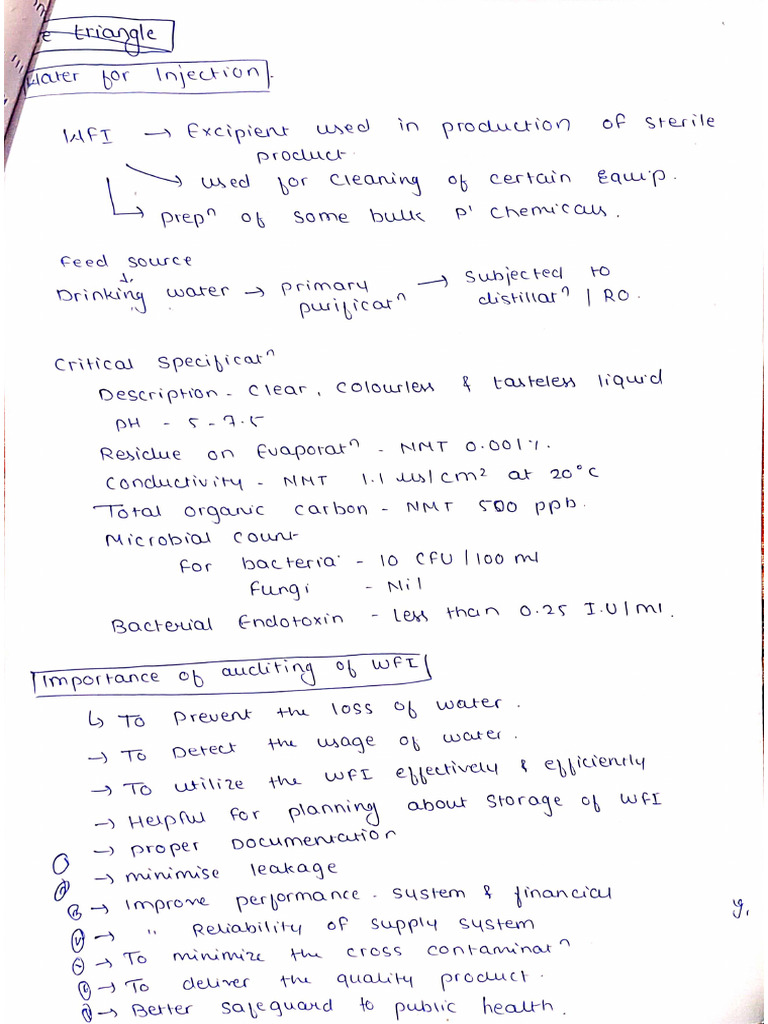 e triangle
Water for Injection.
WFI → Excipient used in production of sterile
product.
→ used for cleaning of certain Equip.
→ prepⁿ of some bulk p' chemicals.
Feed source
↓
Drinking water → primary purificatⁿ → subjected to distillatⁿ / RO.
Critical Specificatⁿ
Description - Clear, colourless & tasteless liquid
pH - 5 - 7.5
Residue on Evaporatⁿ - NMT 0.001%.
Conductivity - NMT 1.1 us/cm² at 20°C
Total organic carbon - NMT 500 ppb.
Microbial count
for bacteria - 10 CFU/100 ml
Fungi - Nil
Bacterial Endotoxin - Less than 0.25 I.U/ml.
Importance of auditing of WFI
↳ To Prevent the loss of water.
→ To Detect the usage of water.
→ To utilize the WFI effectively & efficiently
→ Helpful for planning about storage of WFI
→ proper Documentation
→ minimise leakage
→ Improve performance. system & financial
→ " Reliability of supply system
→ To minimize the cross contaminatⁿ
→ To deliver the quality product.
→ Better safeguard to public health.